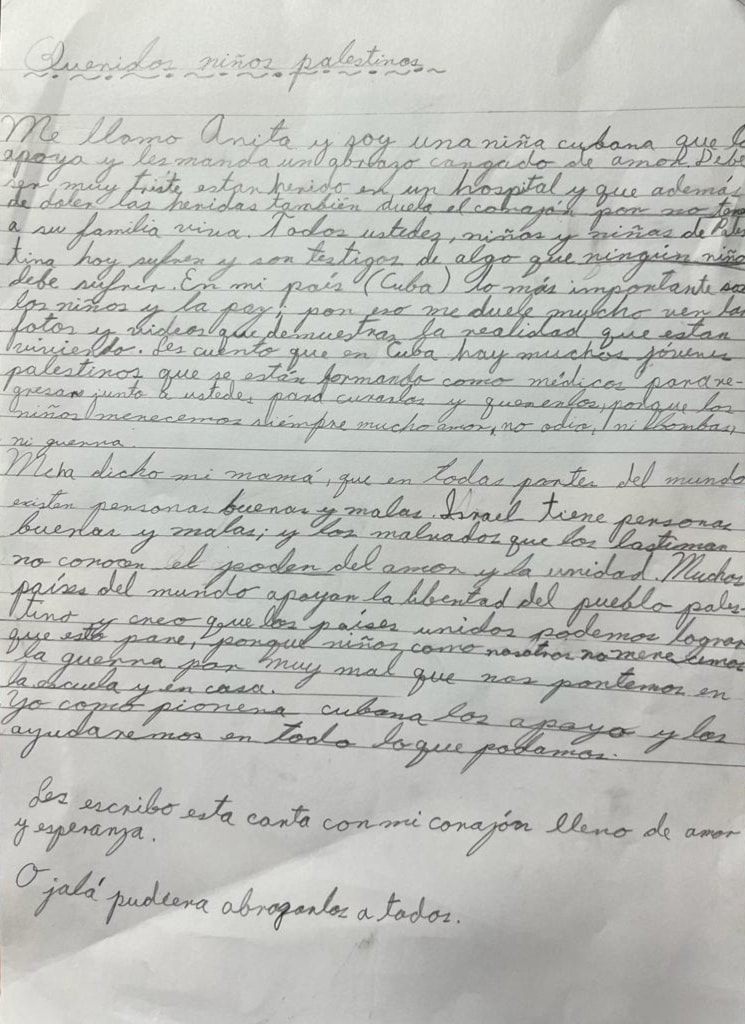 Queridos niños palestinos
Me llamo Anita y soy una niña cubana que lo
apoya y les manda un abrazo cargado de amor. Debe
ser muy triste estar herido en un hospital y que además
de doler las heridas también duela el corazón por no tener
a su familia viva. Todos ustedes, niños y niñas de Pales
tina hoy sufren y son testigos de algo que ningún niño
debe sufrir. En mi país (Cuba) lo más importante son
los niños y la paz; por eso me duele mucho ver las
fotos y videos que demuestras la realidad que están
viviendo. Les cuento que en Cuba hay muchos jóvenes
palestinos que se están formando como médicos para re-
gresar junto a ustedes, para curarlos y quererlos, porque los
niños merecemos siempre mucho amor, no odio, ni bombas,
ni guerra.
Me ha dicho mi mamá, que en todas partes del mundo
existen personas buenas y malas. Israel tiene personas
buenas y malas; y los malvados que los lastiman
no conocen el poder del amor y la unidad. Muchos
países del mundo apoyan la libertad del pueblo pales-
tino y creo que los países unidos podemos lograr
que esto pare, porque niños como nosotros no merecemos
la guerra por muy mal que nos portemos en
la escuela y en casa.
Yo como pionera cubana los apoyo y los
ayudaremos en todo lo que podamos.
Les escribo esta carta con mi corazón lleno de amor
y esperanza.
Ojalá pudiera abrazarlos a todos.